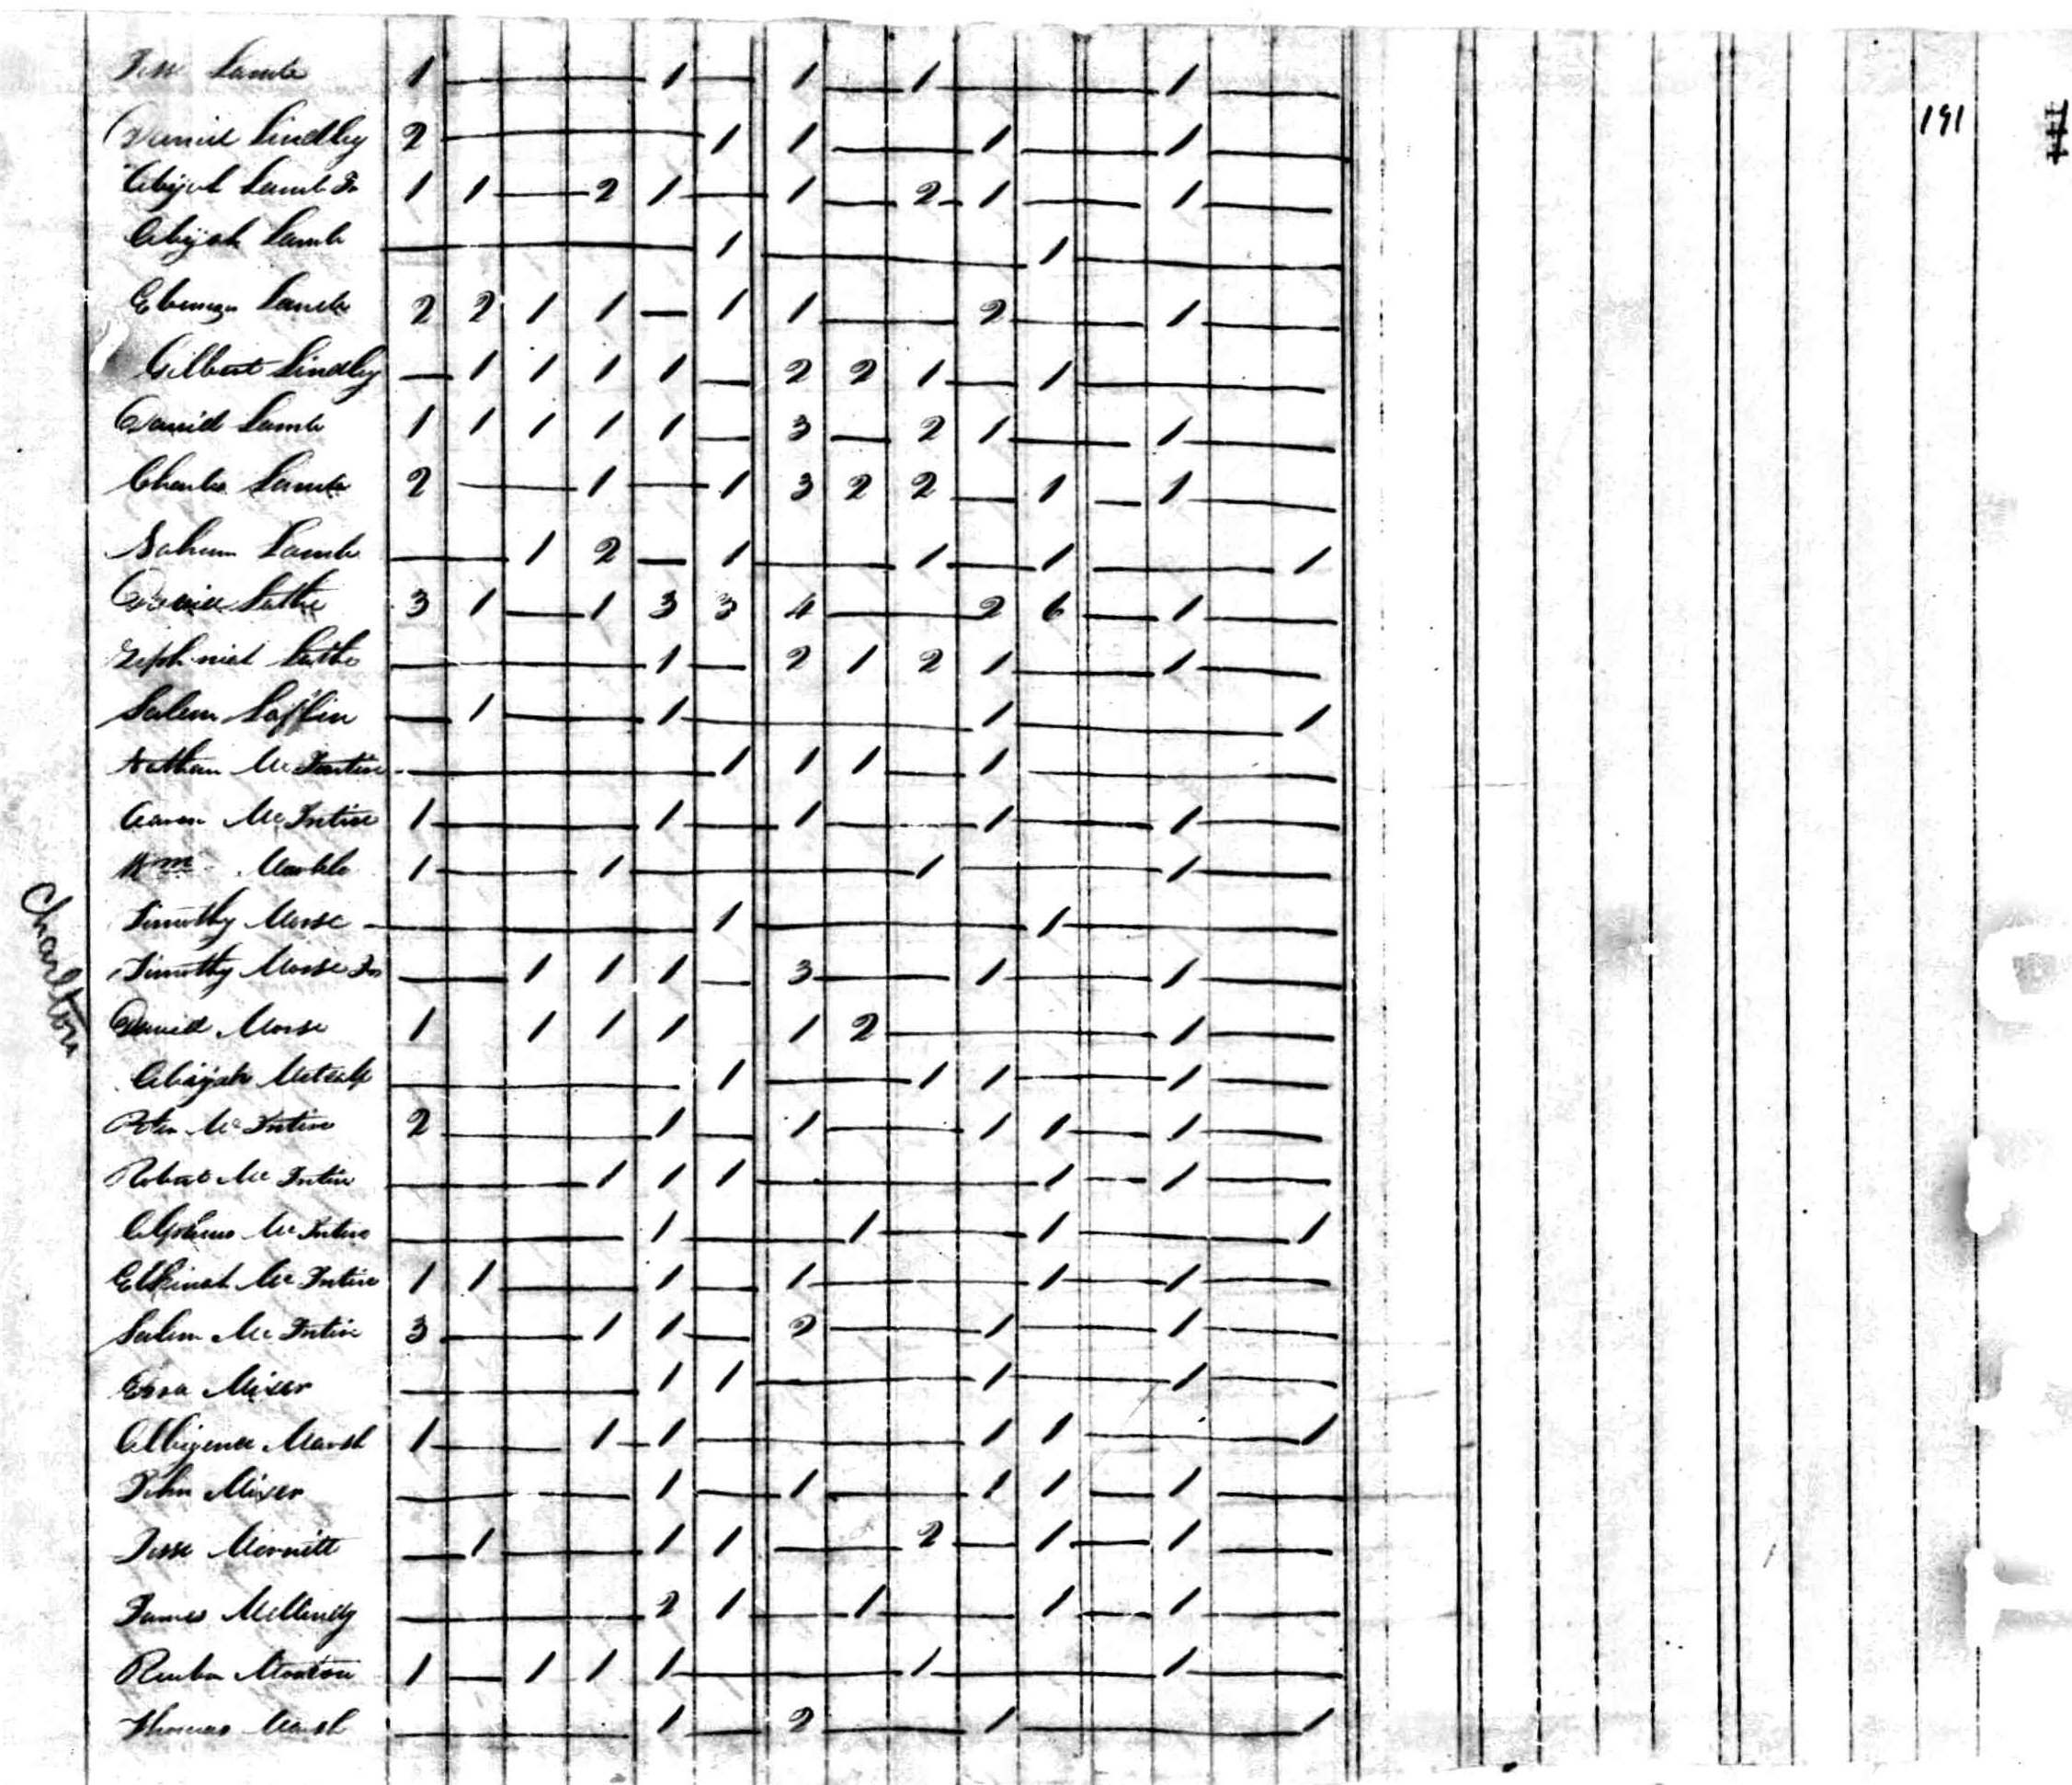 191
Jess Lamb 1 1 1 1 1
Daniel Lindley 2 1 1 1 1
Abijah Lamb Jr 1 1 2 1 1 2 1 1
Abijah Lamb 1 1
Ebenezr Lamb 2 2 1 1 1 1 2 1
Gilbert Lindley 1 1 1 1 2 2 1 1
David Lamb 1 1 1 1 1 3 2 1 1
Charles Lamb 2 1 1 3 2 2 1 1
Nahum Lamb 1 2 1 1 1 1
Lathe 3 1 1 3 3 4 2 6 1
Zephniah Lathe 1 2 1 2 1 1
Salem Lafflin 1 1 1 1
Nathan McIntire 1 1 1 1
Aaron McIntire 1 1 1 1 1
Wm Marble 1 1 1 1
Timothy Morse 1 1
Timothy Morse Jr 1 1 1 3 1 1
David Morse 1 1 1 1 1 2 1
Abijah Metcalf 1 1 1 1
Peter McIntire 2 1 1 1 1 1
Robert McIntire 1 1 1 1 1
McIntire 1 1 1 1
Elkinah McIntire 1 1 1 1 1 1
Salem McIntire 3 1 1 2 1 1
Ezra Mixer 1 1 1 1
Marsh 1 1 1 1 1 1
John Mixer 1 1 1 1 1
Jesse Merritt 1 1 1 2 1 1
James 2 1 1 1 1
Reuben 1 1 1 1 1 1
Thomas Marsh 1 2 1 1
Charlton